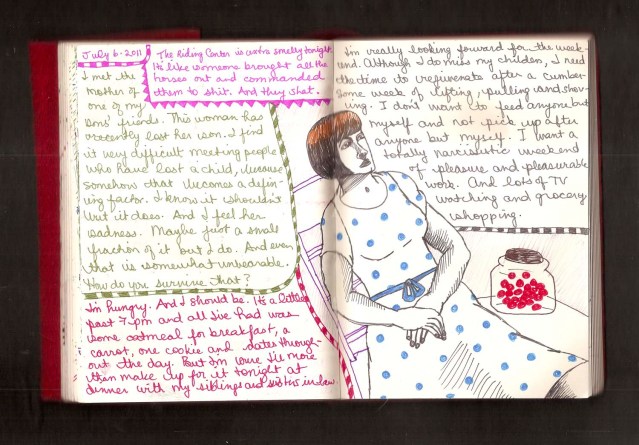 July 6-2011
The Riding Center is extra smelly tonight.
Its like someone brought all the
horses out and commanded
them to shit. And they shat.
I met the
mother of
one of my
sons' friends. This woman has
recently lost her son. I find
it very difficult meeting people
who have lost a child, because
somehow that becomes a defin-
ing factor. I know it shouldn't
but it does. And I feel her
sadness. Maybe just a small
fraction of it but I do. And even
that is somewhat unbearable.
How do you survive that?
I'm hungry. And I should be. Its a little
past 7pm and all I've had was
some oatmeal for breakfast, a
carrot, one cookie and dates through-
out the day. But I'm sure I'll more
than make up for it tonight at
dinner with my siblings and sisters in law
I'm really looking forward for the week-
end. Although I do miss my children, I need
the time to rejuvenate after a cumber-
some week of lifting, pulling and shov-
ing. I don't want to feed anyone but
myself and not pick up after
anyone but myself. I want a
totally narcisistic weekend
of pleasure and pleasurable
work. And lots of TV
watching and grocery
shopping.